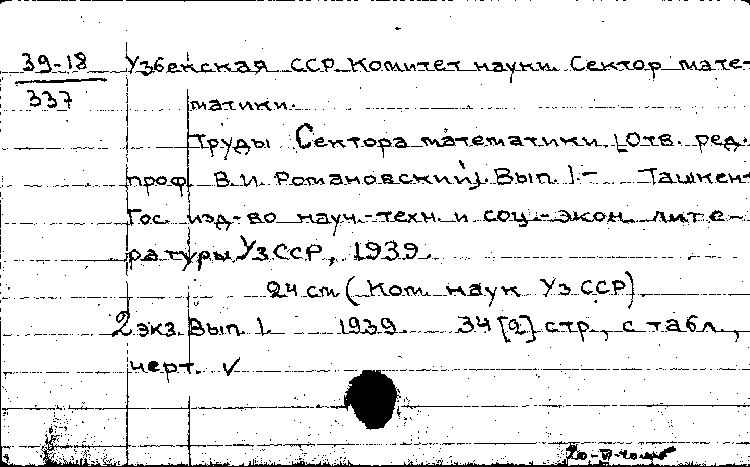 39-18 Узбекская ССР. Комитет науки. Сектор мате-
337 матики.
Труды Сектора математики. [Отв. ред.
проф. В.И. Романовский]. Вып. 1.- Ташкент
Гос. изд-во науч.-техн. и соц.-экон. лите-
ратуры УзССР, 1939.
24 см (Ком. наук УзССР).
2 экз. Вып. 1. 1939. 34 [2] стр., с табл.,
черт. ✓